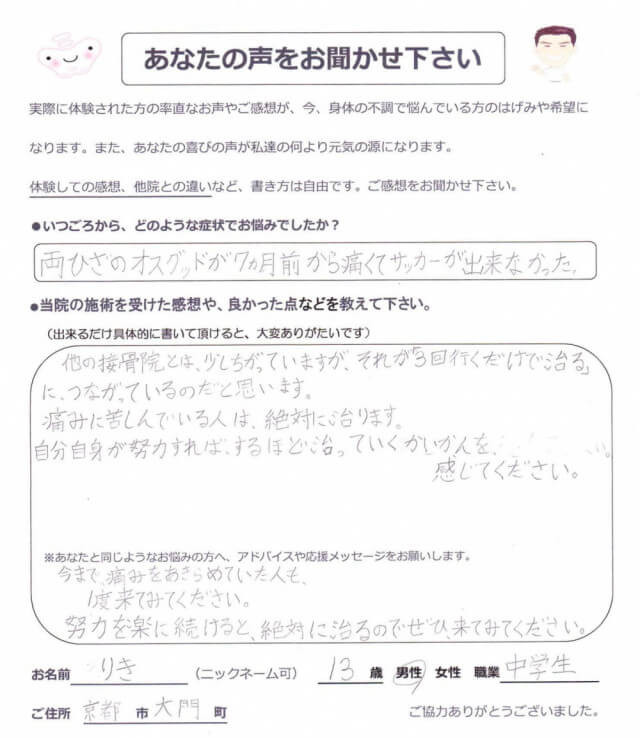 あなたの声をお聞かせ下さい
実際に体験された方の率直なお声やご感想が、今、身体の不調で悩んでいる方のはげみや希望に
なります。また、あなたの喜びの声が私達の何より元気の源になります。
体験しての感想、他院との違いなど、書き方は自由です。ご感想をお聞かせ下さい。
●いつごろから、どのような症状でお悩みでしたか？
両ひざのオスグッドが7ヵ月前から痛くてサッカーが出来なかった。
●当院の施術を受けた感想や、良かった点などを教えて下さい。
（出来るだけ具体的に書いて頂けると、大変ありがたいです）
他の接骨院とは、少しちがっていますが、それが「3回行くだけで治る」
に、つながっているのだと思います。
痛みに苦しんでいる人は、絶対に治ります。
自分自身が努力すれば、するほど治っていくかいかんを、
感じてください。
※あなたと同じようなお悩みの方へ、アドバイスや応援メッセージをお願いします。
今まで、痛みをあきらめていた人も、
1度来てみてください。
努力を楽に続けると、絶対に治るのでぜひ、来てみてください。
お名前 りき （ニックネーム可） 13 歳 男性 女性 職業 中学生
ご住所 京都 市 大門 町 ご協力ありがとうございました。